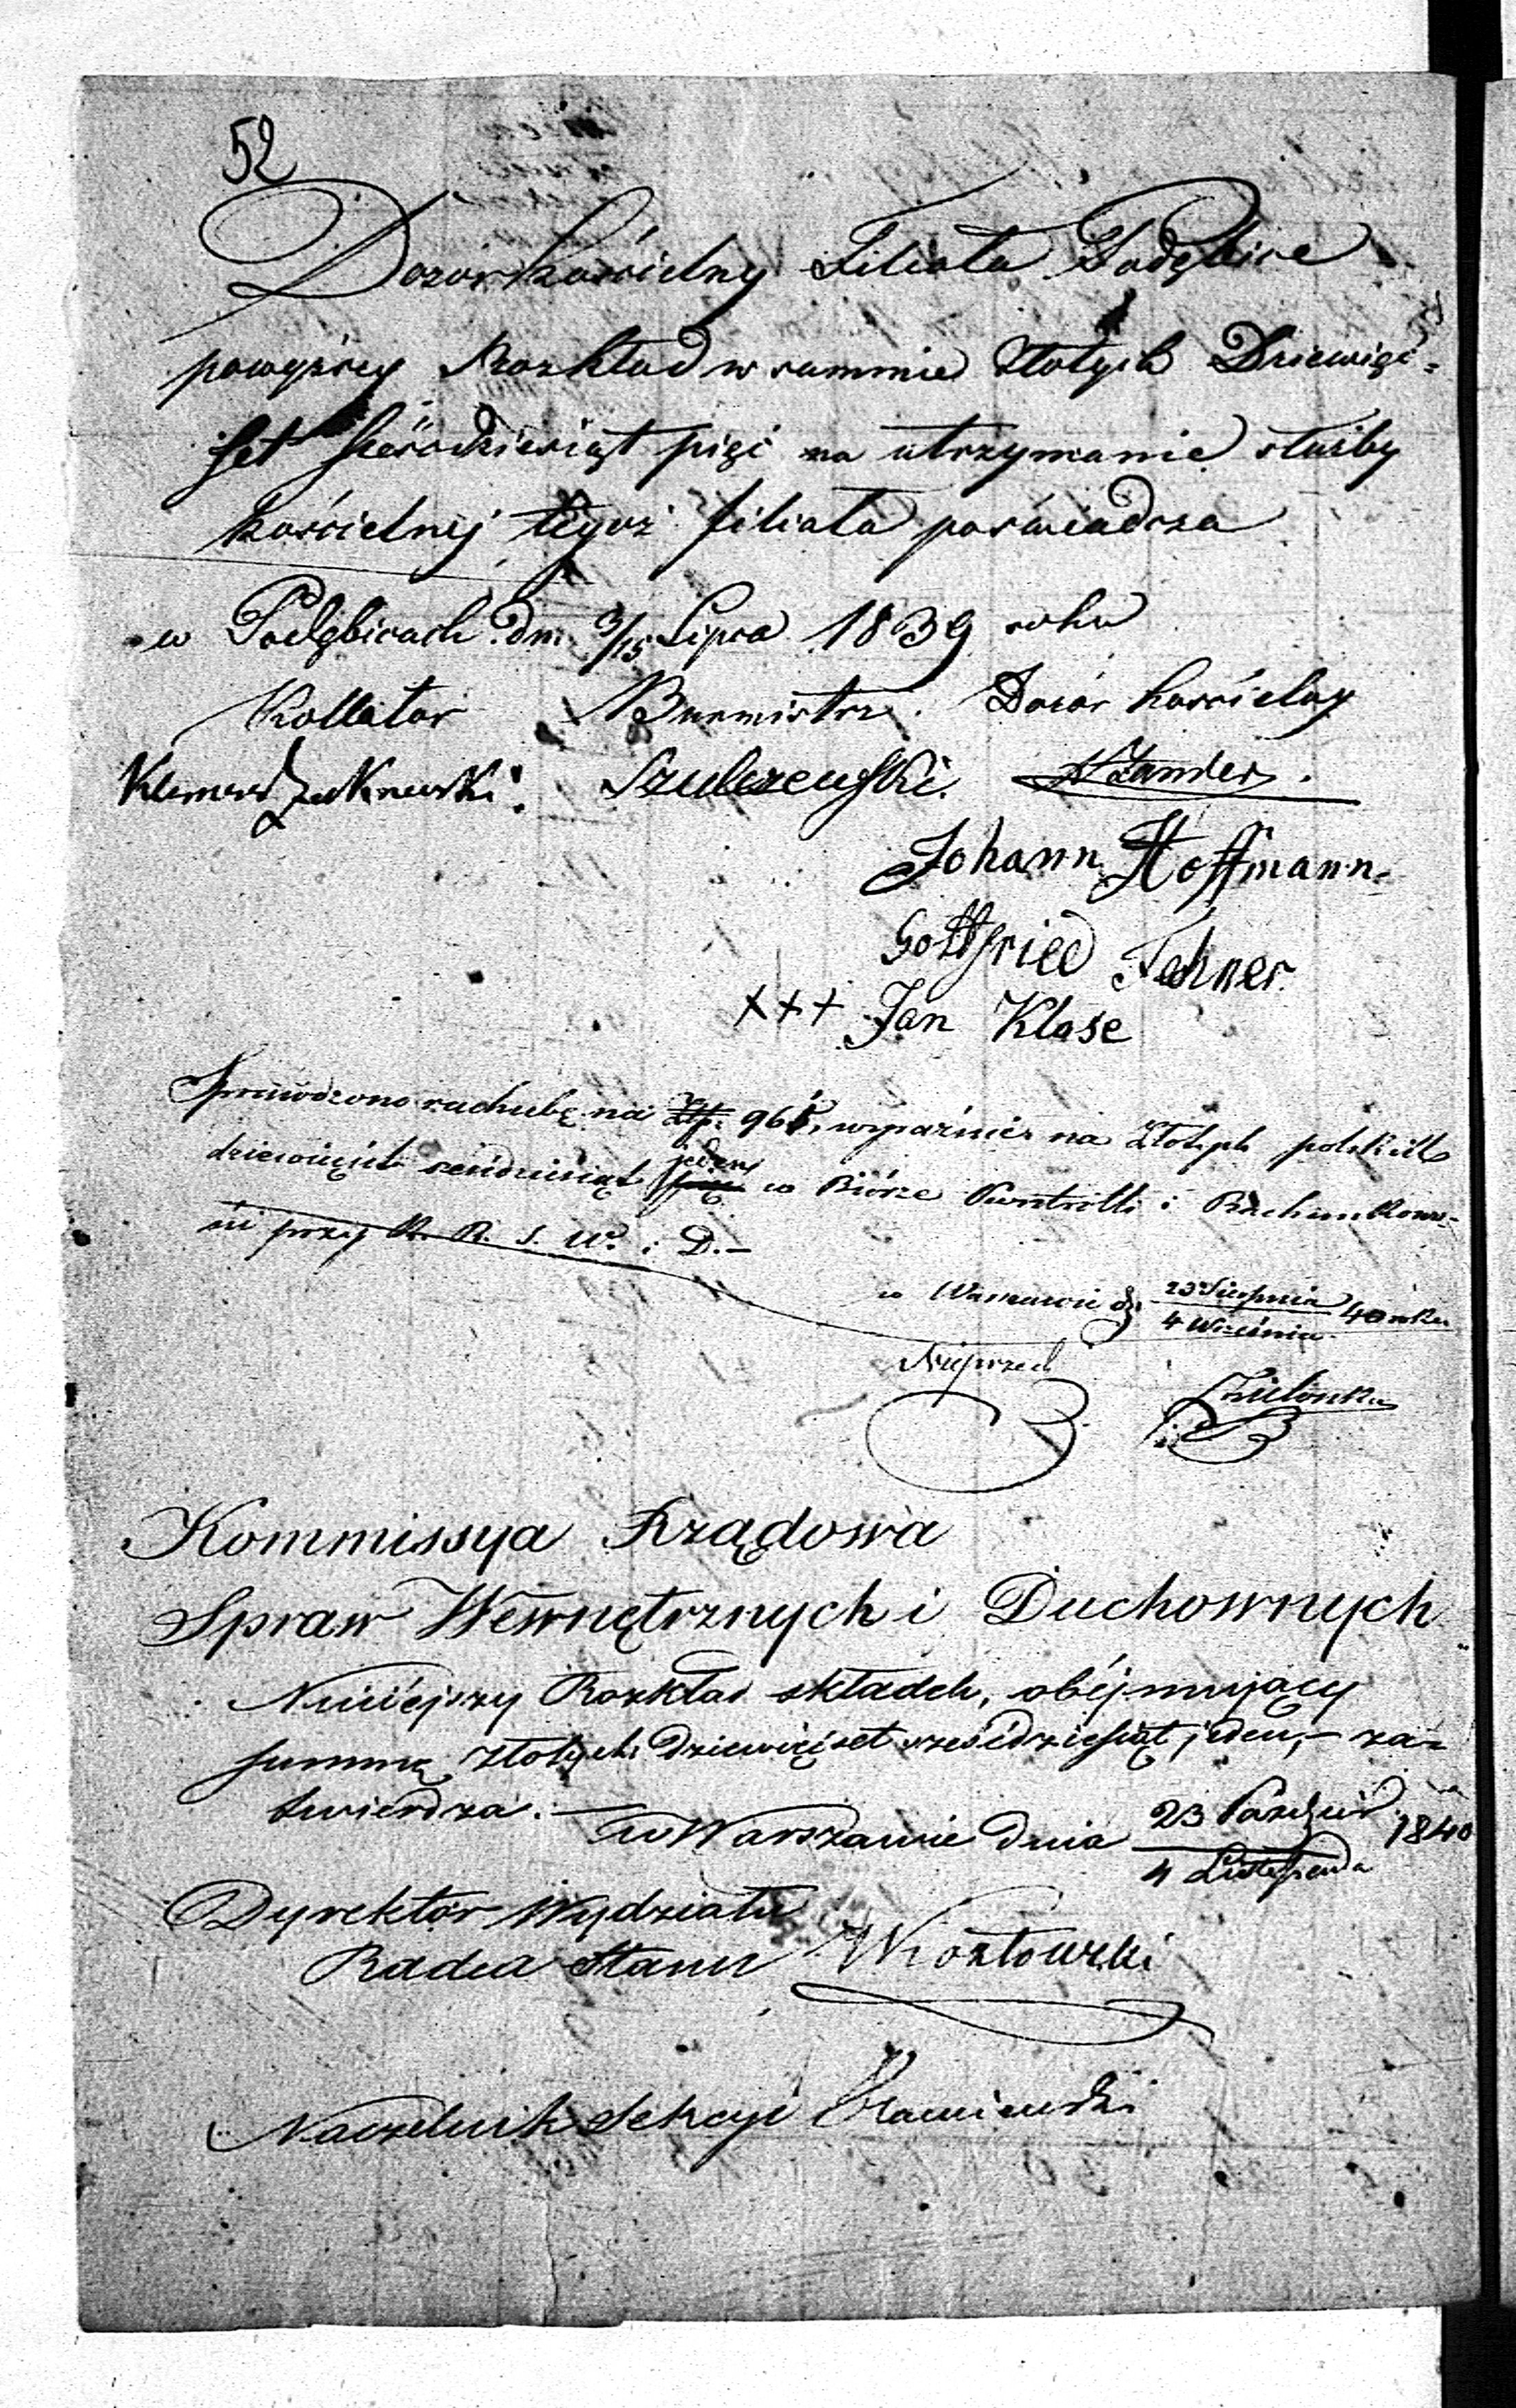 52
Dozór kościelny Filiału Poddębice
powyższy Rozkład w summie Złotych Dziewięć=
set sześćdziesiąt pięć na utrzymanie służby
kościelnej tegoż filiału poświadcza
w Podębicach dn. 3/15 Lipca 1839 roku
Kollator Burmistrz. Dozór kościelny
Szulczewski. Zander.
Johann Hoffmann.
Gottfried Fehner.
+++ Jan Klose
Sprawdzono rachubę na Złp. 961, wyraźnie na Złotych polskich
dziewięćset sześćdziesiąt jeden w Biórze Kontrolli i Rachunkowo-
ści przy K. R. S. W. i D.–
w Warszawie d. 23 Sierpnia / 4 Września 40 roku
Zielonka
Kommissya Rządowa
Spraw Wewnętrznych i Duchownych
Niniejszy Rozkład składek, obejmujący
summę złotych dziewięćset sześćdziesiąt jeden,– za=
twierdza.— w Warszawie dnia 23 Paździer. / 4 Listopada 1840
Dyrektor Wydziału
Radca Stanu Kozłowski
Naczelnik Sekcyi